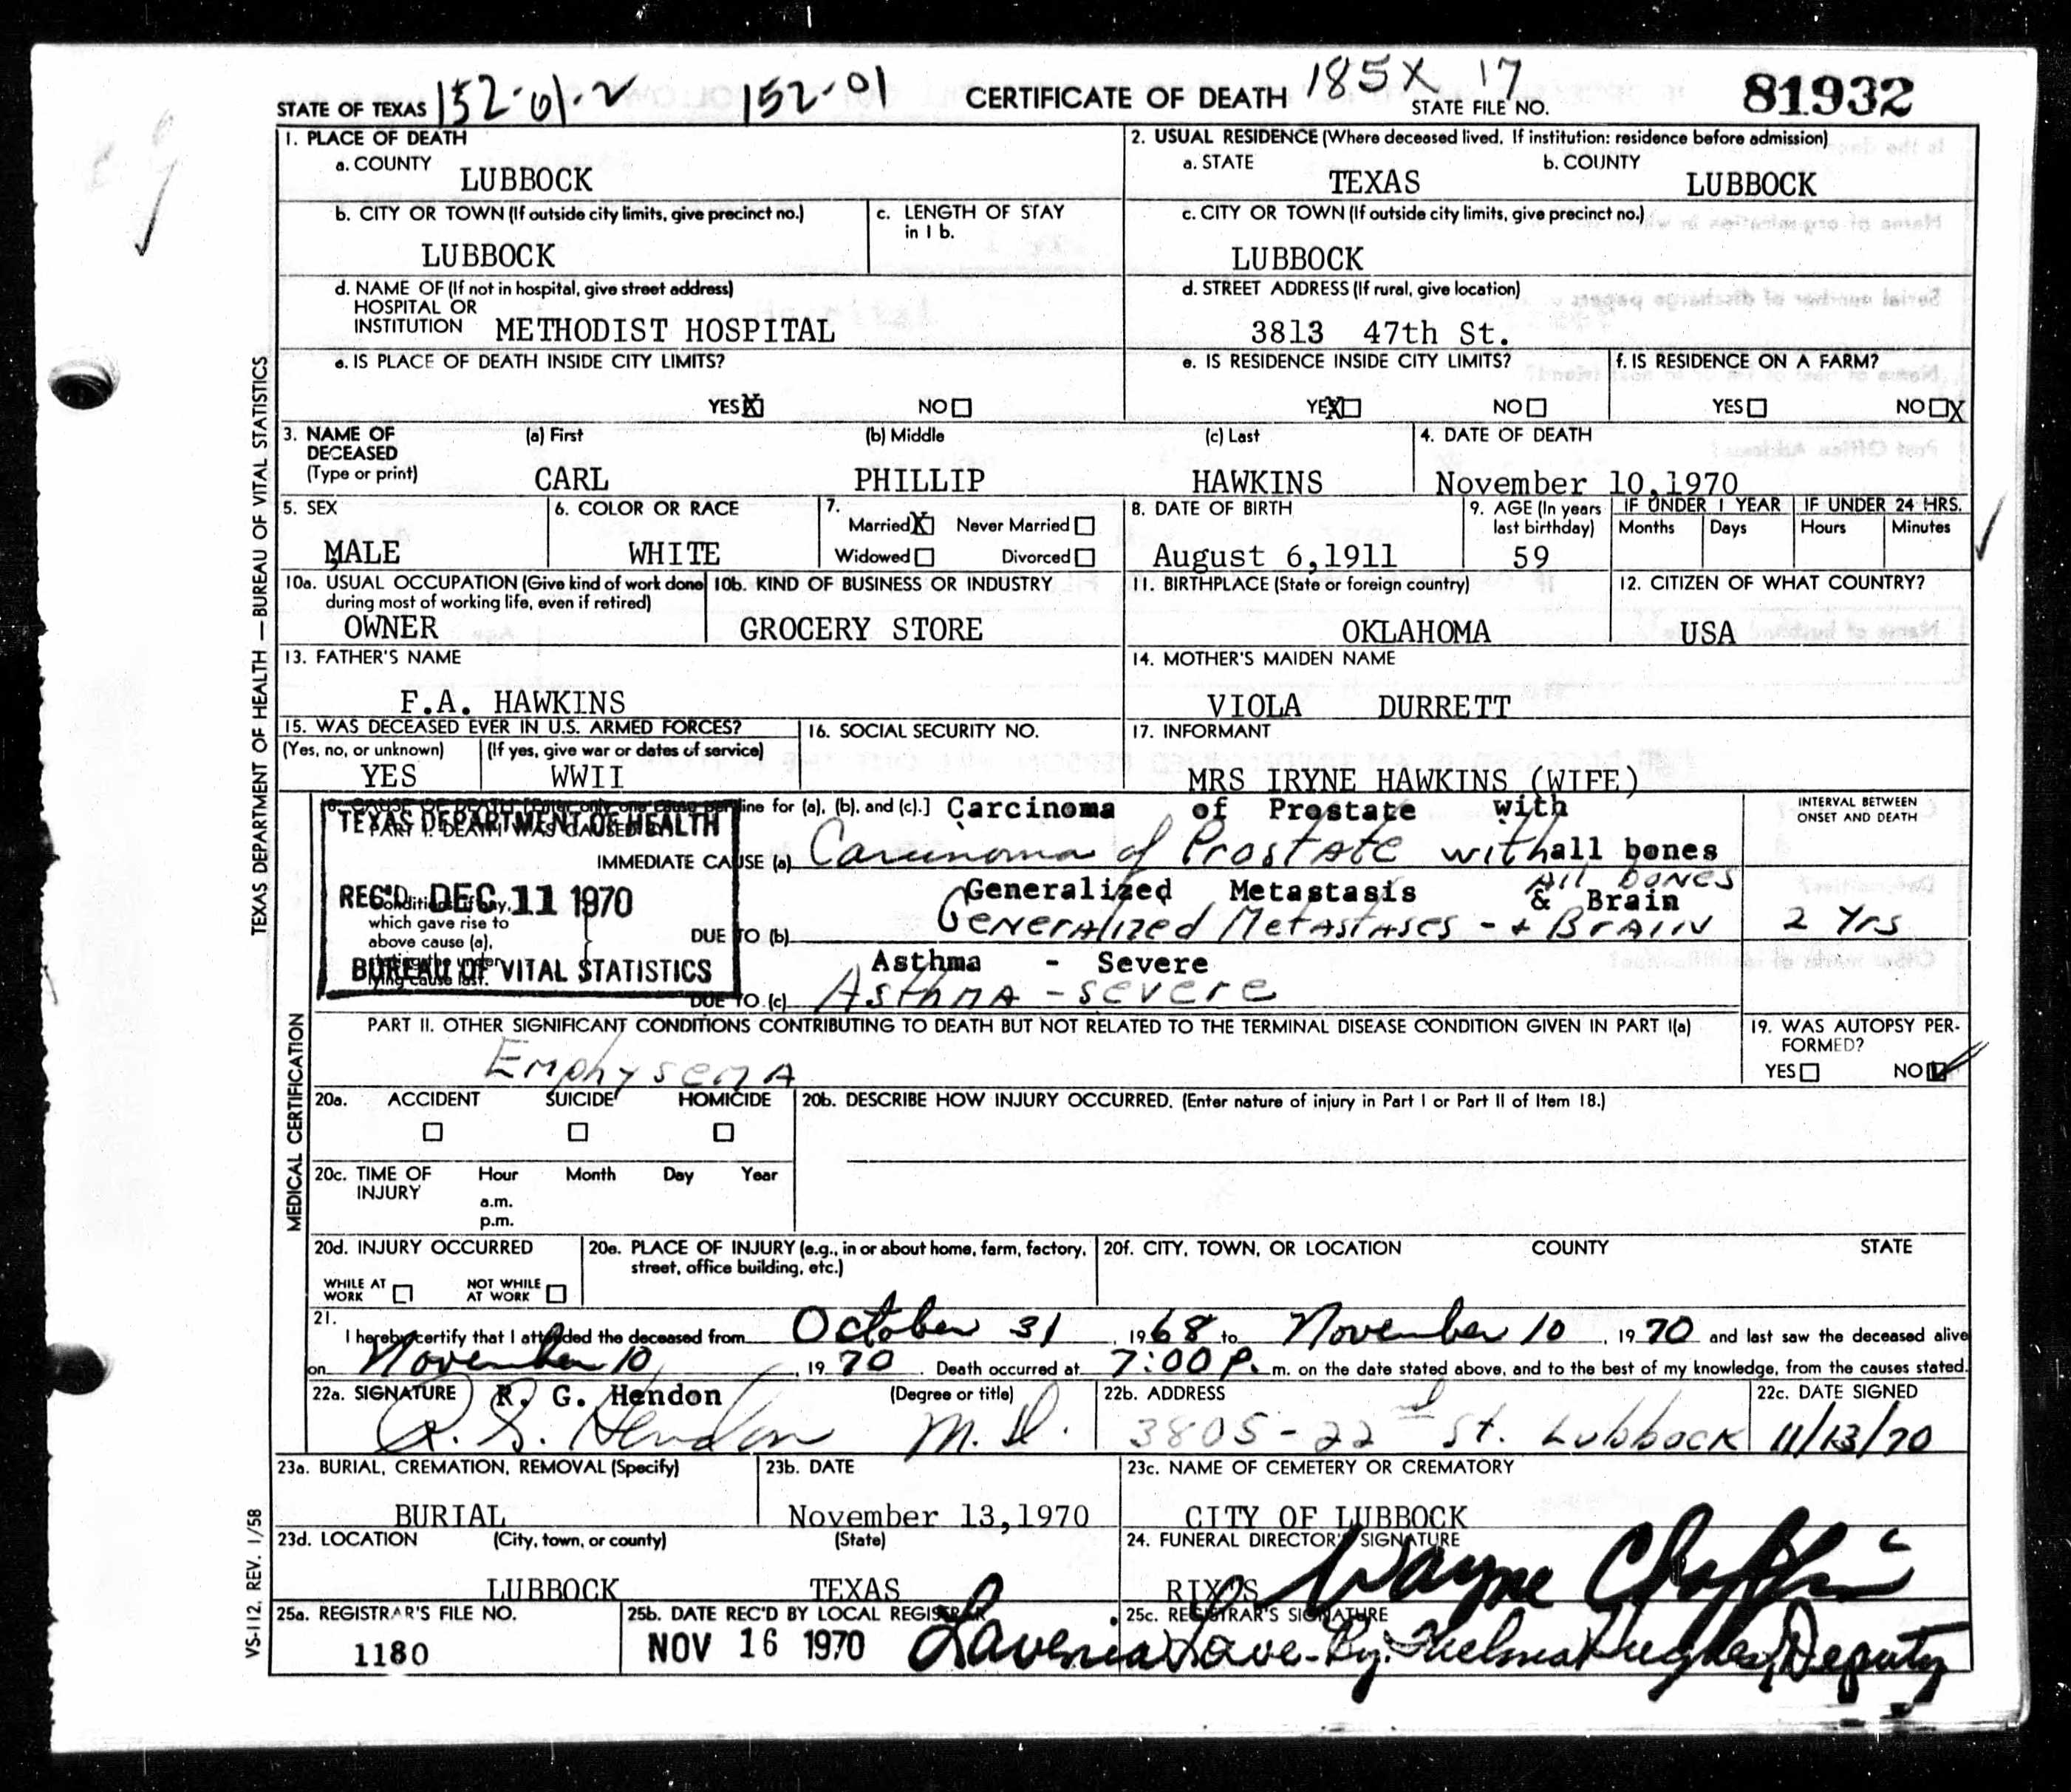 STATE OF TEXAS 152-01-2 152-01 CERTIFICATE OF DEATH 185X 17 STATE FILE NO. 81932
1. PLACE OF DEATH
a. COUNTY LUBBOCK
2. USUAL RESIDENCE (Where deceased lived. If institution: residence before admission)
a. STATE TEXAS b. COUNTY LUBBOCK
b. CITY OR TOWN (If outside city limits, give precinct no.) LUBBOCK
c. LENGTH OF STAY in 1 b.
c. CITY OR TOWN (If outside city limits, give precinct no.) LUBBOCK
d. NAME OF (If not in hospital, give street address)
HOSPITAL OR
INSTITUTION METHODIST HOSPITAL
d. STREET ADDRESS (If rural, give location)
3813 47th St.
e. IS PLACE OF DEATH INSIDE CITY LIMITS?
YES X NO
e. IS RESIDENCE INSIDE CITY LIMITS?
YES X NO
f. IS RESIDENCE ON A FARM?
YES NO X
3. NAME OF DECEASED (Type or print)
(a) First CARL
(b) Middle PHILLIP
(c) Last HAWKINS
4. DATE OF DEATH
November 10,1970
5. SEX
MALE
6. COLOR OR RACE
WHITE
7. Married X Never Married
Widowed Divorced
8. DATE OF BIRTH
August 6,1911
9. AGE (In years last birthday)
59
IF UNDER 1 YEAR
Months Days
IF UNDER 24 HRS.
Hours Minutes
10a. USUAL OCCUPATION (Give kind of work done during most of working life, even if retired)
OWNER
10b. KIND OF BUSINESS OR INDUSTRY
GROCERY STORE
11. BIRTHPLACE (State or foreign country)
OKLAHOMA
12. CITIZEN OF WHAT COUNTRY?
USA
13. FATHER'S NAME
F.A. HAWKINS
14. MOTHER'S MAIDEN NAME
VIOLA DURRETT
15. WAS DECEASED EVER IN U.S. ARMED FORCES?
(Yes, no, or unknown) (If yes, give war or dates of service)
YES WWII
16. SOCIAL SECURITY NO.
17. INFORMANT
MRS IRYNE HAWKINS (WIFE)
18. CAUSE OF DEATH [Enter only one cause per line for (a), (b), and (c).] Carcinoma of Prostate with
PART I. DEATH WAS CAUSED BY:
TEXAS DEPARTMENT OF HEALTH
IMMEDIATE CAUSE (a) Carcinoma of Prostate with all bones
REC'D DEC 11 1970
Conditions, if any, which gave rise to above cause (a), stating the under-lying cause last.
BUREAU OF VITAL STATISTICS
Generalized Metastasis & Brain
All bones
DUE TO (b) Generalized Metastases - + Brain
Asthma - Severe
DUE TO (c) Asthma - severe
INTERVAL BETWEEN ONSET AND DEATH
2 Yrs
PART II. OTHER SIGNIFICANT CONDITIONS CONTRIBUTING TO DEATH BUT NOT RELATED TO THE TERMINAL DISEASE CONDITION GIVEN IN PART I(a)
Emphysema
19. WAS AUTOPSY PERFORMED?
YES NO
20a. ACCIDENT SUICIDE HOMICIDE
20b. DESCRIBE HOW INJURY OCCURRED. (Enter nature of injury in Part I or Part II of Item 18.)
20c. TIME OF INJURY Hour Month Day Year
a.m.
p.m.
20d. INJURY OCCURRED
WHILE AT WORK NOT WHILE AT WORK
20e. PLACE OF INJURY (e.g., in or about home, farm, factory, street, office building, etc.)
20f. CITY, TOWN, OR LOCATION COUNTY STATE
21. I hereby certify that I attended the deceased from October 31, 1968 to November 10, 1970 and last saw the deceased alive
on November 10, 1970. Death occurred at 7:00 P.m. on the date stated above, and to the best of my knowledge, from the causes stated.
22a. SIGNATURE R. G. Hendon (Degree or title)
R. G. Hendon M.D.
22b. ADDRESS
3805-22nd St. Lubbock
22c. DATE SIGNED
11/13/70
23a. BURIAL, CREMATION, REMOVAL (Specify)
BURIAL
23b. DATE
November 13,1970
23c. NAME OF CEMETERY OR CREMATORY
CITY OF LUBBOCK
23d. LOCATION (City, town, or county) (State)
LUBBOCK TEXAS
24. FUNERAL DIRECTOR'S SIGNATURE
RIXOS Wayne
25a. REGISTRAR'S FILE NO.
1180
25b. DATE REC'D BY LOCAL REGISTRAR
NOV 16 1970
25c. REGISTRAR'S SIGNATURE
Lavenia Lowe-By: Thelma Hughes, Deputy
TEXAS DEPARTMENT OF HEALTH — BUREAU OF VITAL STATISTICS
MEDICAL CERTIFICATION
VS-112. REV. 1/58